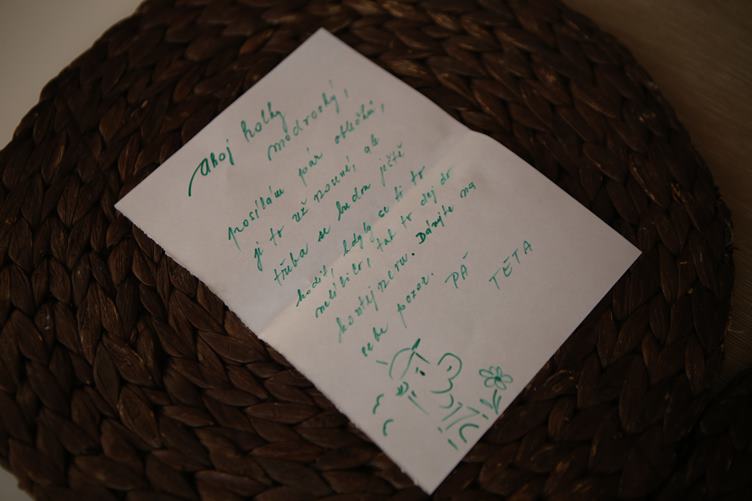 Ahoj holky
modrooký,
posílám pár oblečků,
je to už nosené, ale
třeba se budou ještě
hodit, kdyby se ti to
nelíbilo, tak to dej do
kontejneru. Dávejte na
sebe pozor. PÁ
TETA